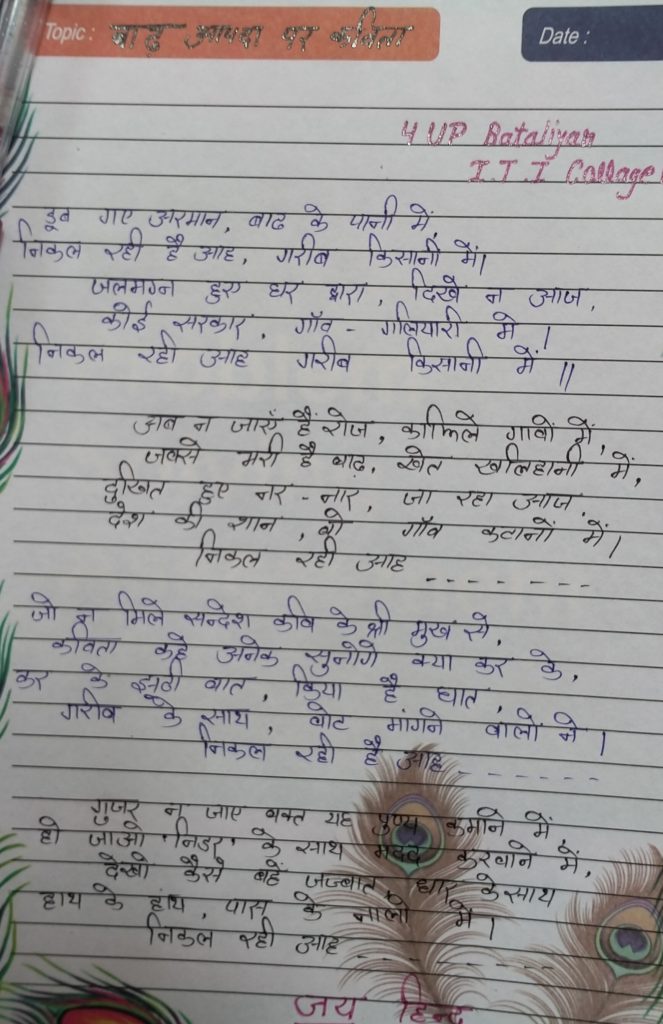 Topic : बाढ़ आपदा पर कविता
Date :
4 UP Bataliyan
I T I Collage
डूब गए अरमान, बाढ के पानी में,
निकल रही है आह, गरीब किसानी में।
जलमग्न हुए घर द्वारा, दिखे न आज,
कोई सरकार, गाँव - गलियारी मे ।
निकल रही आह गरीब किसानी में ॥
अब न जाएँ हैं रोज, काफिले गावों में,
जबसे मरी है बाढ़, खेत खलिहानी में,
दुखित हुए नर - नार, जा रहा आज,
देश की शान, गाँव कटानों में।
निकल रही आह - - - - - - - -
जो न मिले सन्देश कवि के श्री मुख से,
कविता कहे अनेक सुनोगे क्या कर के,
कर के झूठी बात, किया है घात,
गरीब के साथ, वोट मांगने वालो ने ।
निकल रही है आह - - - - - - -
गुजर न जाए वक्त यह पुण्य कमाने में,
हो जाओ 'निडर' के साथ मदद करवाने में,
देखो कैसे बहें जज्बात, धार के साथ
हाथ के हाथ, पास के नालो में।
निकल रही आह - - - - - - - - -
जय हिन्द